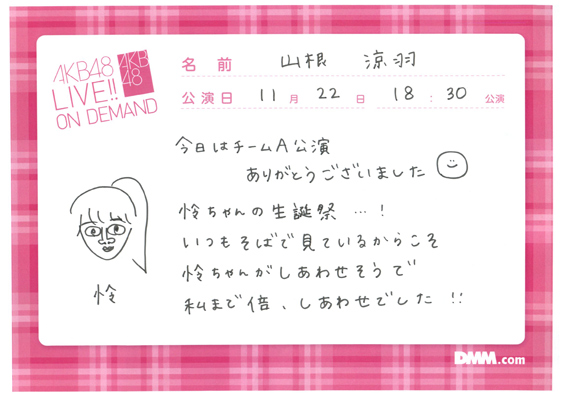 AKB48
LIVE!!
ON DEMAND
AKB
48
名前 山根 涼羽
公演日 11月 22日 18:30 公演
今日はチームA公演
ありがとうございました
怜ちゃんの生誕祭 …!
いつもそばで見ているからこそ
怜ちゃんがしあわせそうで
私まで倍、しあわせでした !!
怜
DMM.com